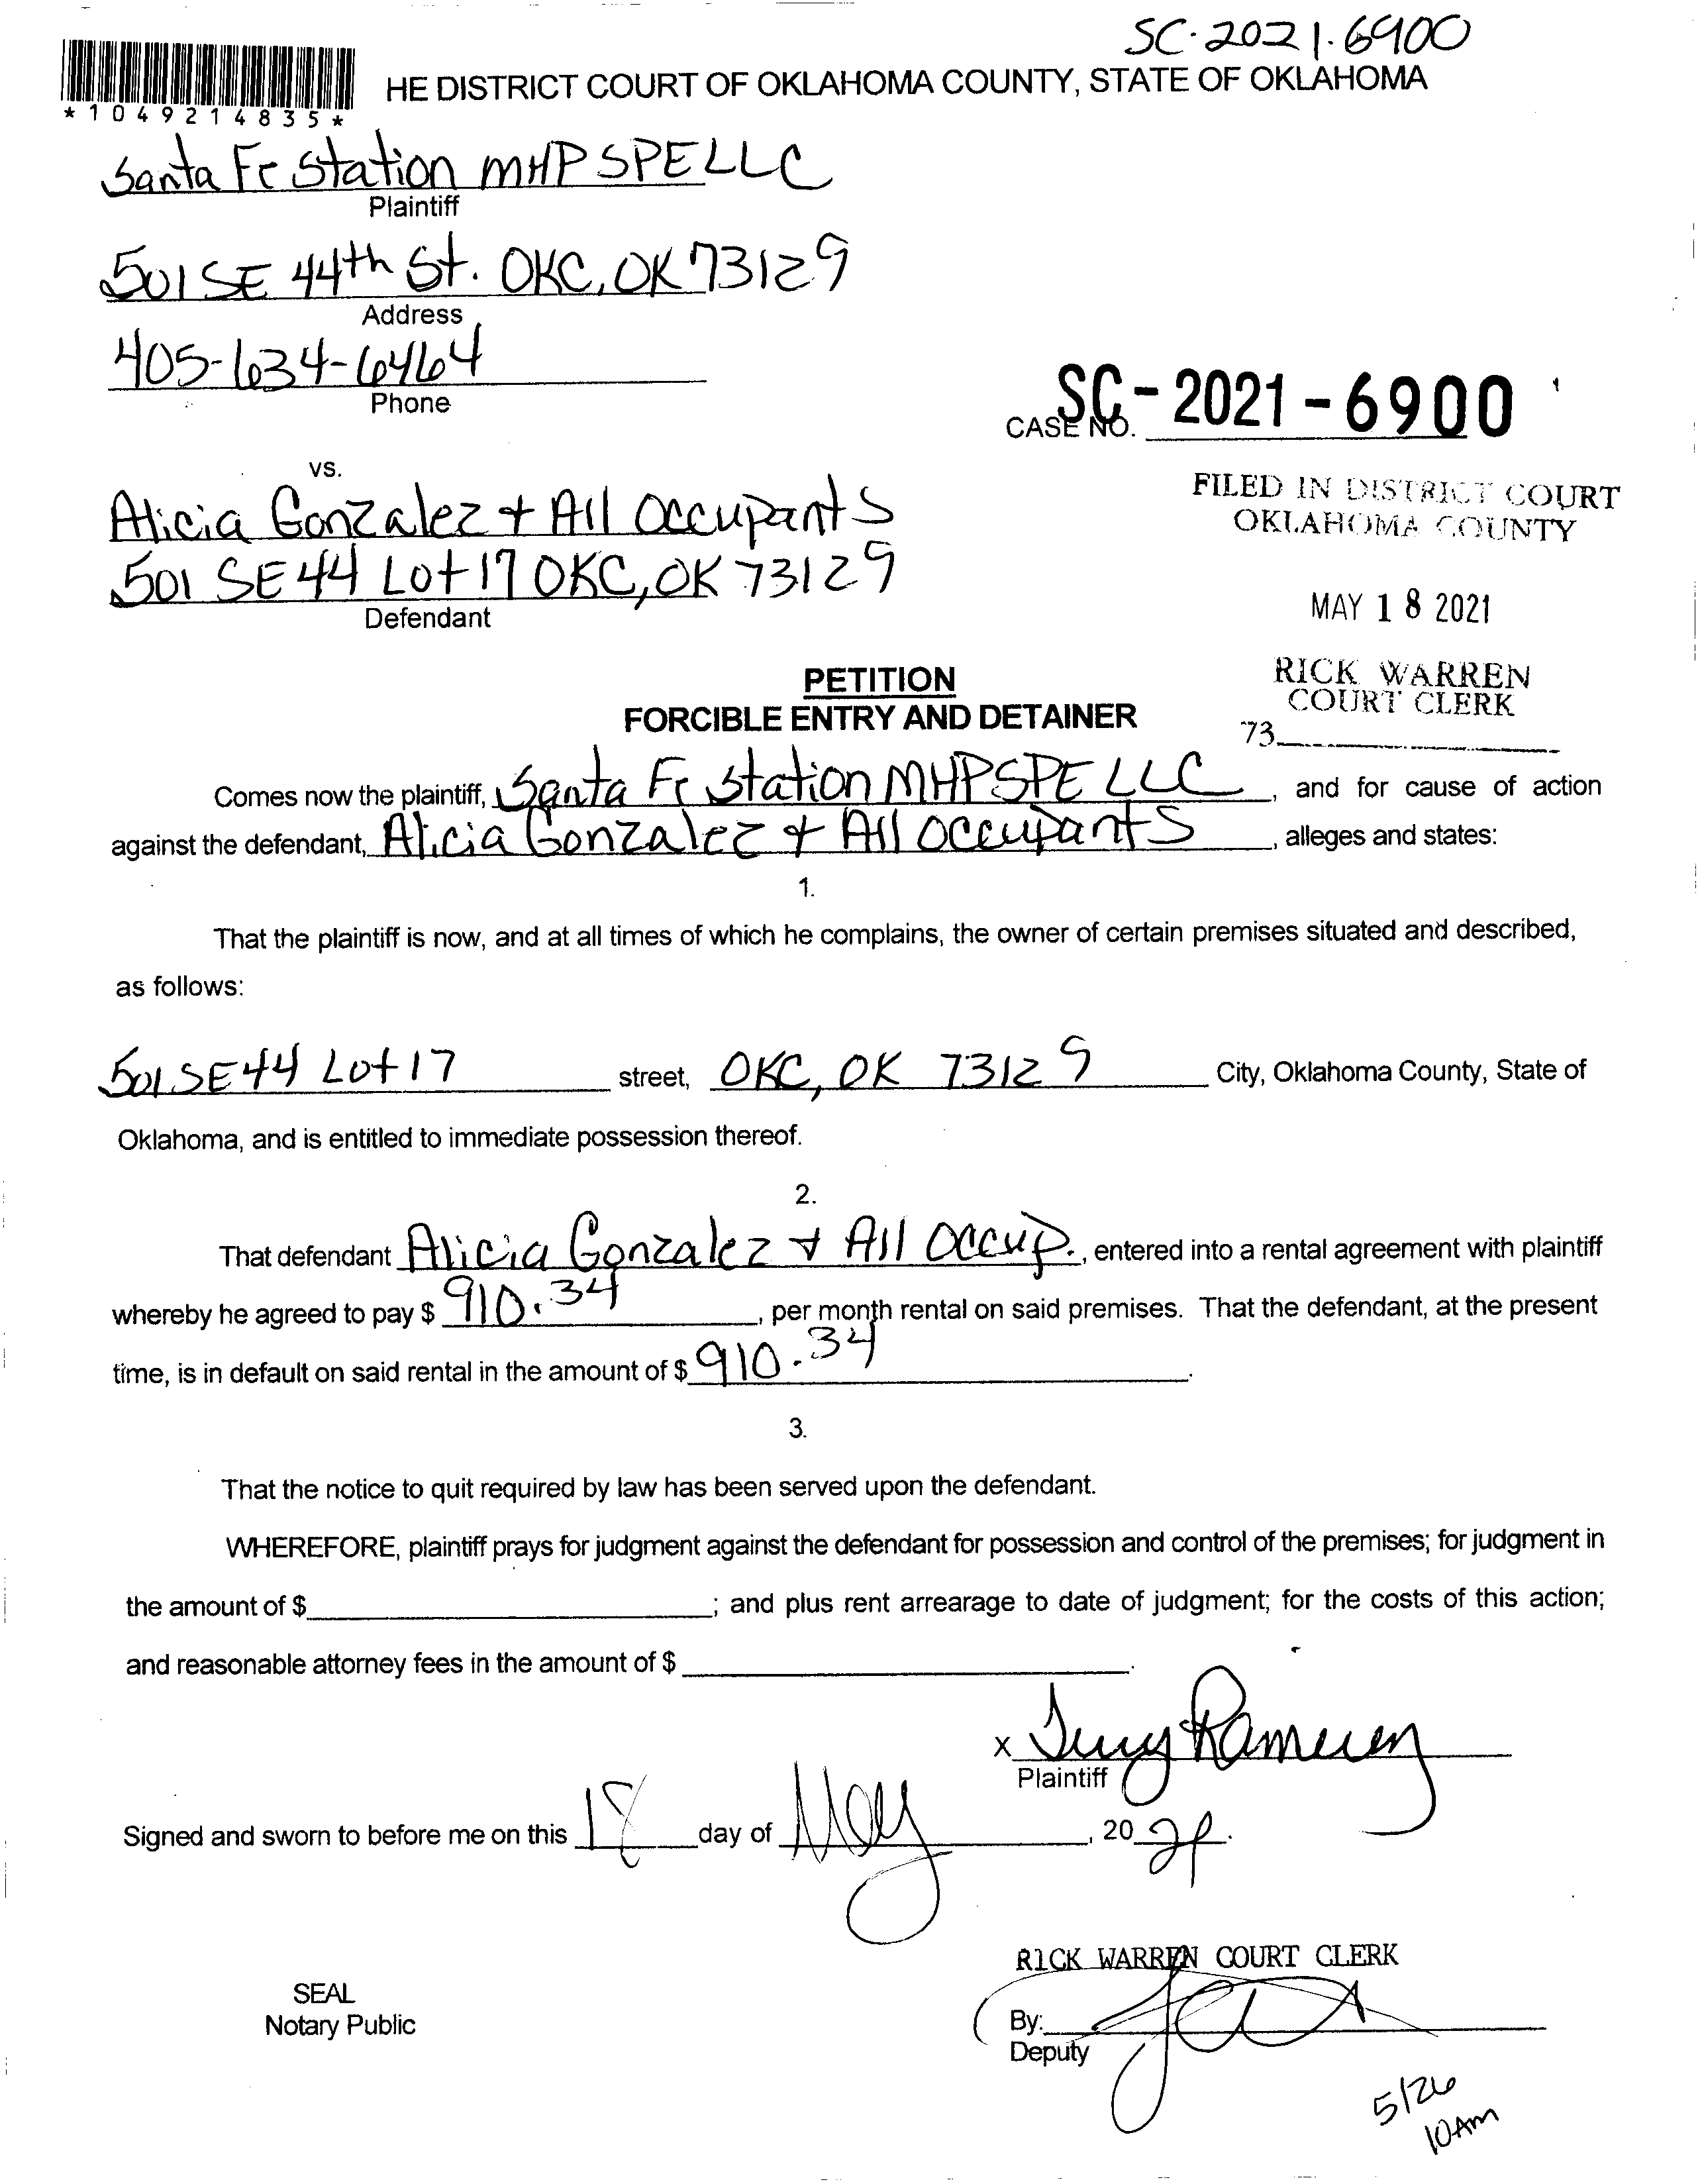 SC-2021-6900
HE DISTRICT COURT OF OKLAHOMA COUNTY, STATE OF OKLAHOMA
*1049214835*
Santa Fe Station MHP SPE LLC
Plaintiff
501 SE 44th St. OKC, OK 73129
Address
405-634-6464
Phone
CASE NO. SC-2021-6900
vs.
Alicia Gonzalez + All Occupants
501 SE 44 Lot 17 OKC, OK 73129
Defendant
FILED IN DISTRICT COURT
OKLAHOMA COUNTY
MAY 18 2021
RICK WARREN
COURT CLERK
73
PETITION
FORCIBLE ENTRY AND DETAINER
Comes now the plaintiff, Santa Fe Station MHP SPE LLC, and for cause of action
against the defendant, Alicia Gonzalez + All Occupants, alleges and states:
1.
That the plaintiff is now, and at all times of which he complains, the owner of certain premises situated and described,
as follows:
501 SE 44 Lot 17 street, OKC, OK 73129 City, Oklahoma County, State of
Oklahoma, and is entitled to immediate possession thereof.
2.
That defendant Alicia Gonzalez + All Occup., entered into a rental agreement with plaintiff
whereby he agreed to pay $ 910.34, per month rental on said premises. That the defendant, at the present
time, is in default on said rental in the amount of $ 910.34.
3.
That the notice to quit required by law has been served upon the defendant.
WHEREFORE, plaintiff prays for judgment against the defendant for possession and control of the premises; for judgment in
the amount of $; and plus rent arrearage to date of judgment; for the costs of this action;
and reasonable attorney fees in the amount of $.
X
Plaintiff
Signed and sworn to before me on this 18 day of May, 2021.
RICK WARREN COURT CLERK
SEAL
Notary Public
By:
Deputy
5/26
10AM